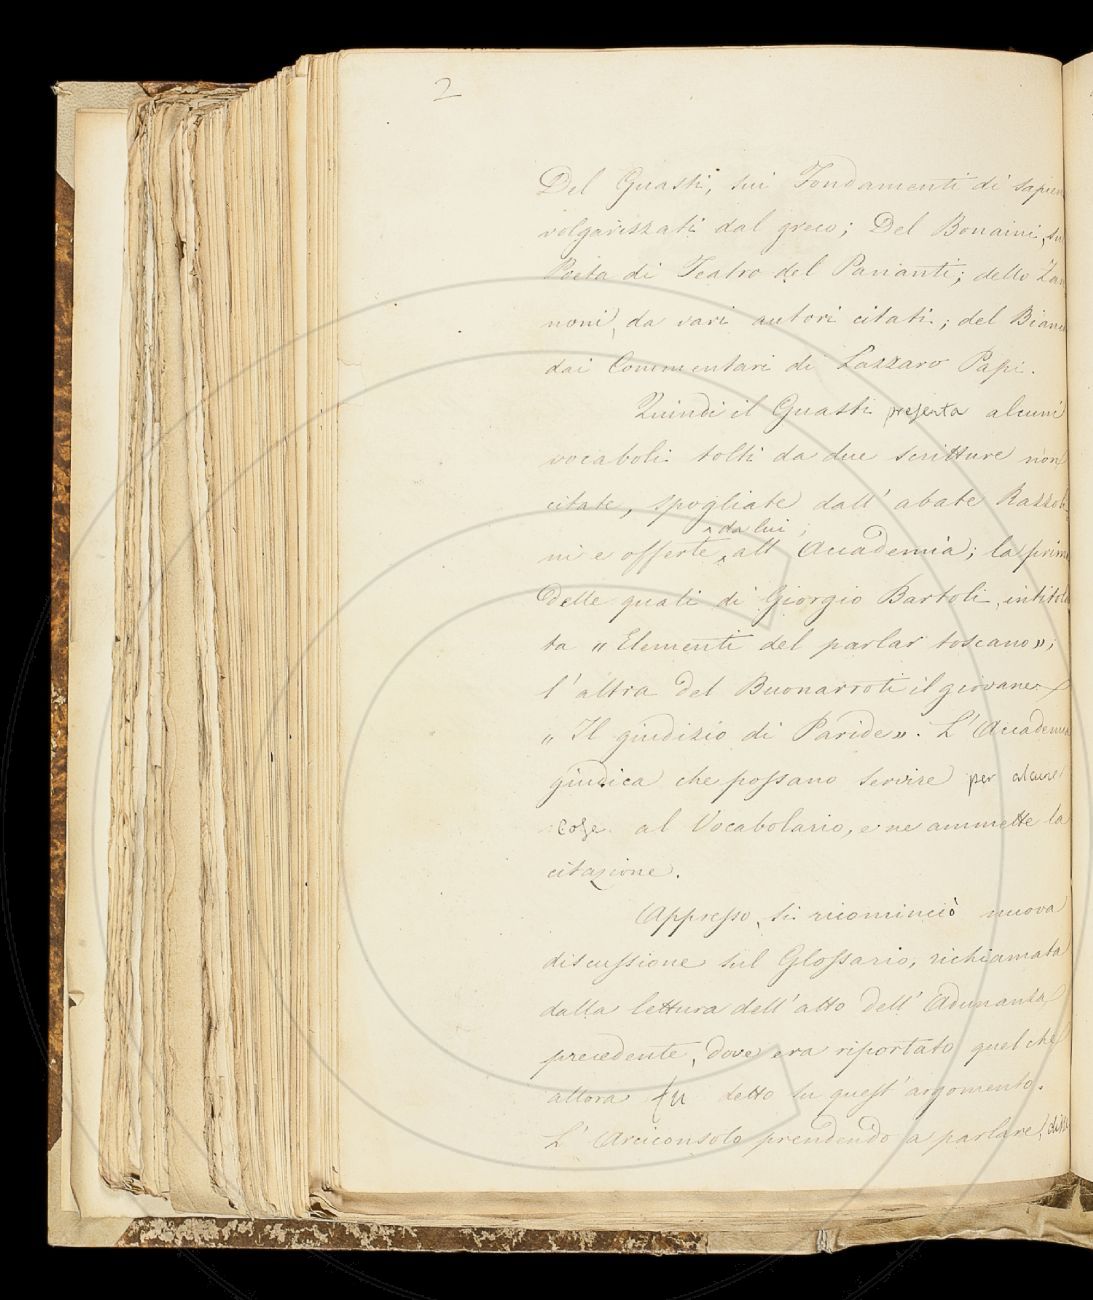 2
Del Guasti, sui Fondamenti di sapien
volgarizzati dal greco; Del Bonaini, su
Poeta di Teatro del Pananti; dello Zan
noni, da vari autori citati; del Bianc
dai Commentari di Lazzaro Papi.
Quindi il Guasti presenta alcuni
vocaboli tolti da due scritture non
citate, spogliate dall' abate Razzol
da lui;
ni e offerte, all' Accademia; la prim
delle quali di Giorgio Bartoli, intitola
ta "Elementi del parlar toscano";
l'altra del Buonarroti il giovane
"Il giudizio di Paride". L'Accademia
giudica che possano servire per alcune
cose al Vocabolario, e ne ammette la
citazione.
Appresso, si ricominciò nuova
discussione sul Glossario, richiamata
dalla lettura dell'atto dell' Adunanza
precedente, dove era riportato quel che
allora fu detto su quest'argomento.
L' Arciconsolo prendendo a parlare, disse